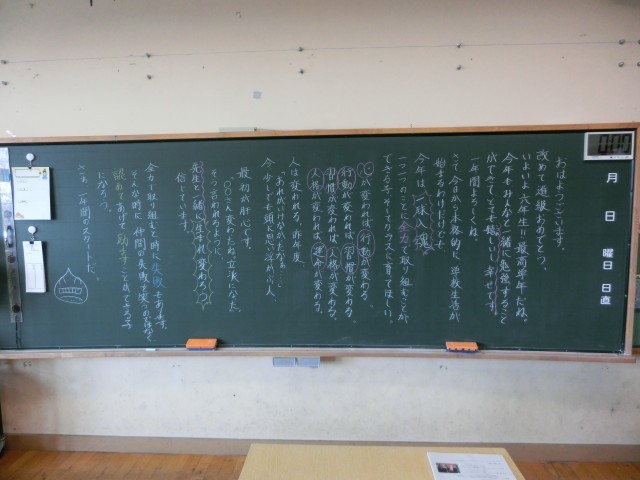 月 日 曜日 日直
おはようございます。
改めて進級おめでとう。
いよいよ六年生。最高学年だね。
今年もみんなと一緒に勉強すること
ができてとても嬉しいし幸せです。
一年間よろしくね。
さて今日から本格的に、学校生活が
始まるわけだけども、
今年は、「一球入魂」
一つ一つのことに全力で取り組むことが
できる子、そしてクラスに育ってほしい。
心が変われば行動が変わる。
行動が変われば習慣が変わる。
習慣が変われば人格が変わる。
人格が変われば運命が変わる。
人は変われる。昨年度、
今、少しでも頭に思い浮かぶ人、
最初が肝心です。
「○○さん変わったね。立派になった。」
そう言われるように、
先生と一緒に生まれ変わろう。
信じています。
全力で取り組むと時に失敗もあります。
そんな時に、仲間の失敗を笑うのではなく
認めてあげて助けることができる子
になろう。
さあ、一年間のスタートだ。